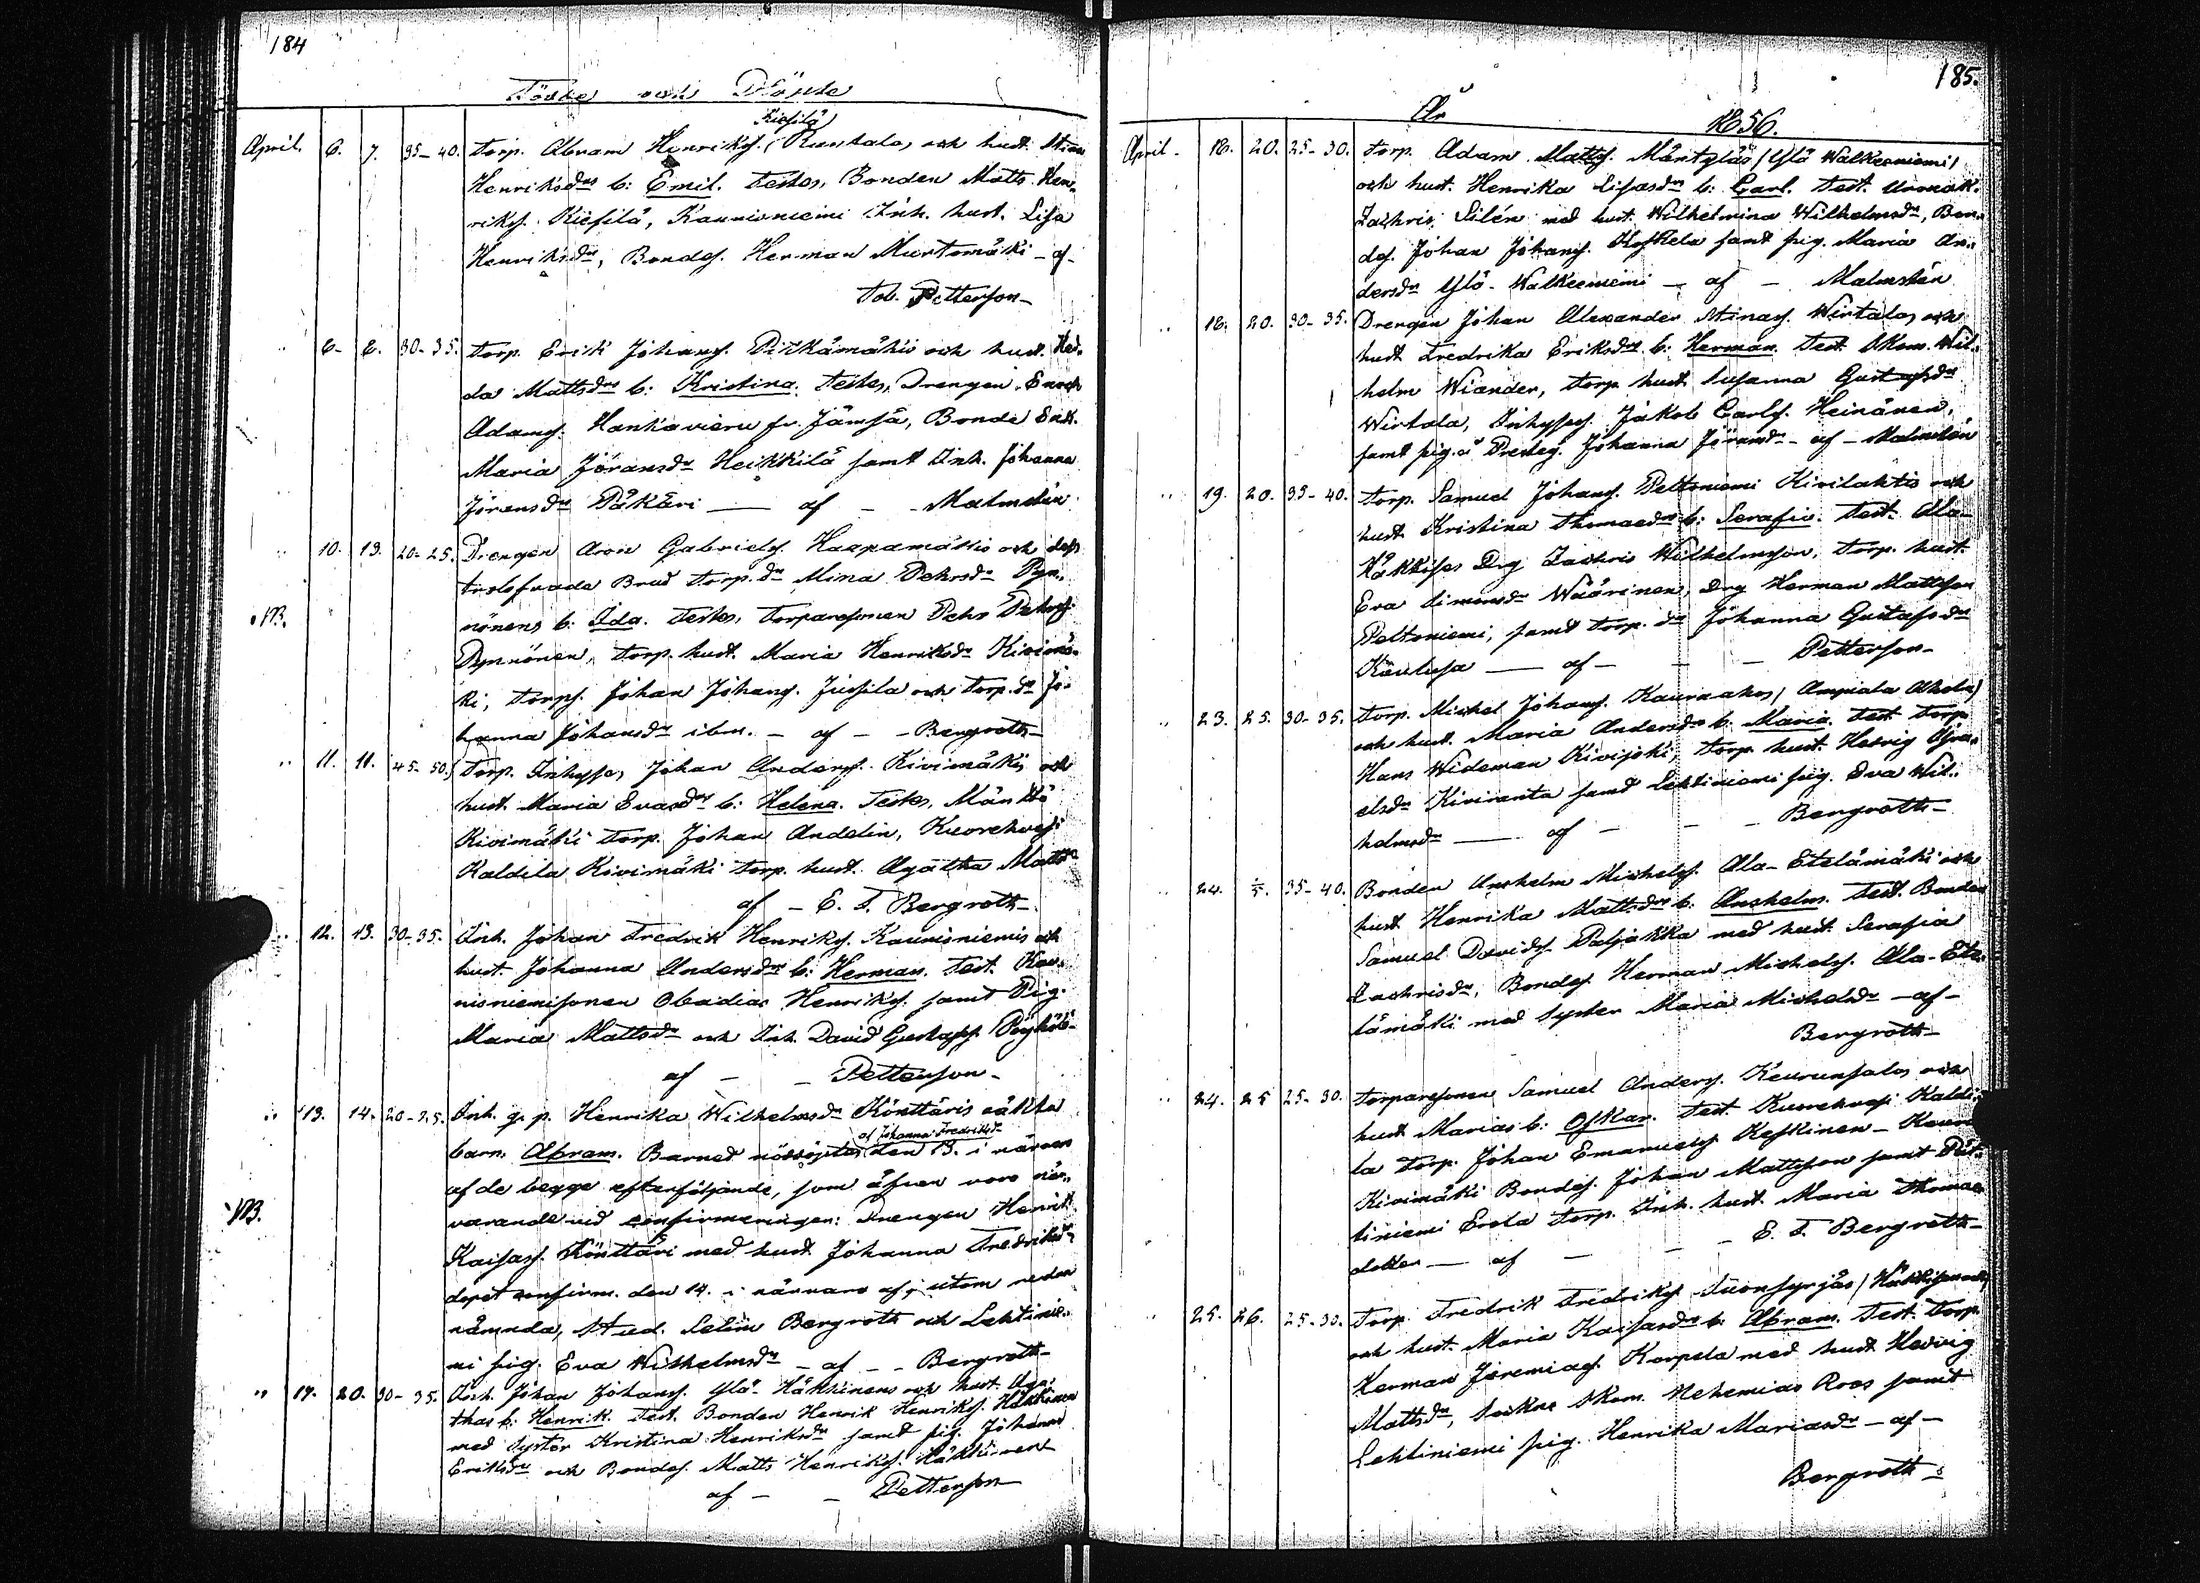 184
Födde och Döpte
Kiesilä)
April. 6. 7. 35-40. Torp. Abram Henriksſ. (Ruokala, och hust. Stina
Henriksdrs b: Emil. Testes, Bonden Matts Hen-
riksſ. Kiesilä, Kaunisniemi Inh. hust. Lisa
Henriksdr, Bondeſ. Herman Murtomäki - af -
Tob. Petterson -
" 6. 8. 30-35. Torp. Erik Johansſ. Pitkämäkis och hust. Hed-
da Mattsdrs b: Kristina. Testes, Drengen Enoch
Adamsſ. Hankavieru fr. Jämsä, Bonde Enk.
Maria Jöransdr Heikkilä samt Inh. Johanna
Jöransdr Päkäri — af - Malmstén
" 10. 13. 20-25. Drengen Aron Gabrielsſ. Haapamäkis och dess
trolofvade Brud Torp. dr Mina Pehrsdr Pyn-
NB. nönens b: Ida. Testes, Torparesonen Pehr Pehrsſ.
Pynnönen, Torp. hust. Maria Henriksdr Kivimä-
ki, Torpſ. Johan Johansſ. Jussila och Torp. dr Jo-
hanna Johansdr ibm. - af - - Bergroth -
" 11. 11. 45-50. Torp. Inhysse, Johan Andersſ. Kivimäkis och
hust. Maria Evasdrs b: Helena. Testes, Mänttä
Kivimäki Torp. Johan Andelin, Kuorehvesi
Kaldila Kivimäki Torp. hust. Agatha Mattsdr
af - E. F. Bergroth -
" 12. 13. 30-35. Inh. Johan Fredrik Henriksſ. Kaunisniemis och
hust. Johanna Andersdrs b: Herman. Test. Kau-
nisniemisonen Obadias Henriksſ. samt Pig.
Maria Mattsdr och Inh. David Gustafsſ. Pöyhölä
af - - Petterson -
" 13. 14. 20-25. Inh. q. p. Henrika Wilhelmsdr Könttäris oäkta
af Johanna Fredriksdr
barn. Abram. Barnet nöddöptes den 13. i närvaro
af de begge efterföljande, som äfven voro när-
NB. varande vid confirmeringen: Drengen Henrik
Kaisasſ. Könttäri med hust. Johanna Fredriksdr
dopet confirm. den 14. i närvaro af, utom redan
nämnda, Stud. Selim Bergroth och Lehtinie-
mi pig. Eva Wilhelmsdr - af - - Bergroth -
" 17. 20. 30-35. Inh. Johan Johansſ. Ylä-Häkkinens och hust. Aga-
thas b: Henrik. Test. Bonden Henrik Henriksſ. Häkkinen
med Syster Kristina Henriksdr samt pig. Johanna
Eriksdr och Bondeſ. Matts Henriksſ. Häkkinen
af - - Petterson
185.
År 1856.
April. 18. 20. 25-30. Torp. Adam Mattsſ. Mäntyläs (Ylä Walkeeniemi)
och hust. Henrika Lisasdrs b: Carl. Test. Urmak.
Zachris Silén med hust. Wilhelmina Wilhelmsdr, Bon-
deſ. Johan Johansſ. Koskela samt pig. Maria An-
dersdr Ylä-Walkeeniemi - af - Malmstén
" 18. 20. 30-35. Drengen Johan Alexander Stinasſ. Wirtalas och
hust Fredrika Eriksdrs b: Herman. Test. Skom. Wil-
helm Wiander, Torp. hust. Susanna Gustafsdr
Wirtala, Inhysses. Jakob Carlsſ. Heinänen,
samt pig. å Presteg. Johanna Jöransdr - af - Malmstén
" 19. 20. 35-40. Torp. Samuel Johansſ. Peltoniemi Kivilahtis och
hust. Kristina Thomaedrs b: Serafia. Test. Ala-
Häkkises Drg Zachris Wilhelmsson, Torp. hust.
Eva Simonsdr Wäärinen, Drg Herman Mattsson
Peltoniemi, samt Torp. dr Johanna Gustafsdr
— af - - - Petterson -
" 23. 25. 30-35. Torp. Michel Johansſ. Kauraahos (Ampiala Ahola)
och hust. Maria Andersdrs b: Maria. Test. Torp.
Hans Wideman Kivijoki, Torp. hust. Hedvig
elsdr Kiviranta samt Lehtiniemi pig. Eva Wil-
helmsdr — af - - - Bergroth -
" 24. 1/5. 35-40. Bonden Anshelm Michelsſ. Ala-Etelämäkis och
hust Henrika Mattsdrs b: Anshelm. Test. Bonden
Samuel Davidsſ. Paljakka med hust. Serafia
Zachrisdr, Bondeſ. Herman Michelsſ. Ala-Ete-
lämäki med syster Maria Michelsdr - af -
Bergroth -
" 24. 25 25-30. Torparesonen Samuel Andersſ. Keurunsalos och
hust. Marias b: Oskar. Test. Kuorehvesi Kaldi-
la Torp. Johan Emanuelsſ. Keskinen - Keuru
Kivimäki Bondeſ. Johan Mattsson samt
Erola Torp. Inh. hust. Maria Thomae
dotter — af - - - E. F. Bergroth -
" 25. 26. 25-30. Torp. Fredrik Fredriksſ. Suonsyrjäs (Häkkisen
och hust. Maria Kaisasdrs b: Abram. Test. Torp.
Herman Jeremiasſ. Korpela med hust. Hedvig
Mattsdr, Sockne Skom. Nehemias Roos samt
Lehtiniemi pig. Henrika Mariasdr - af -
Bergroth -